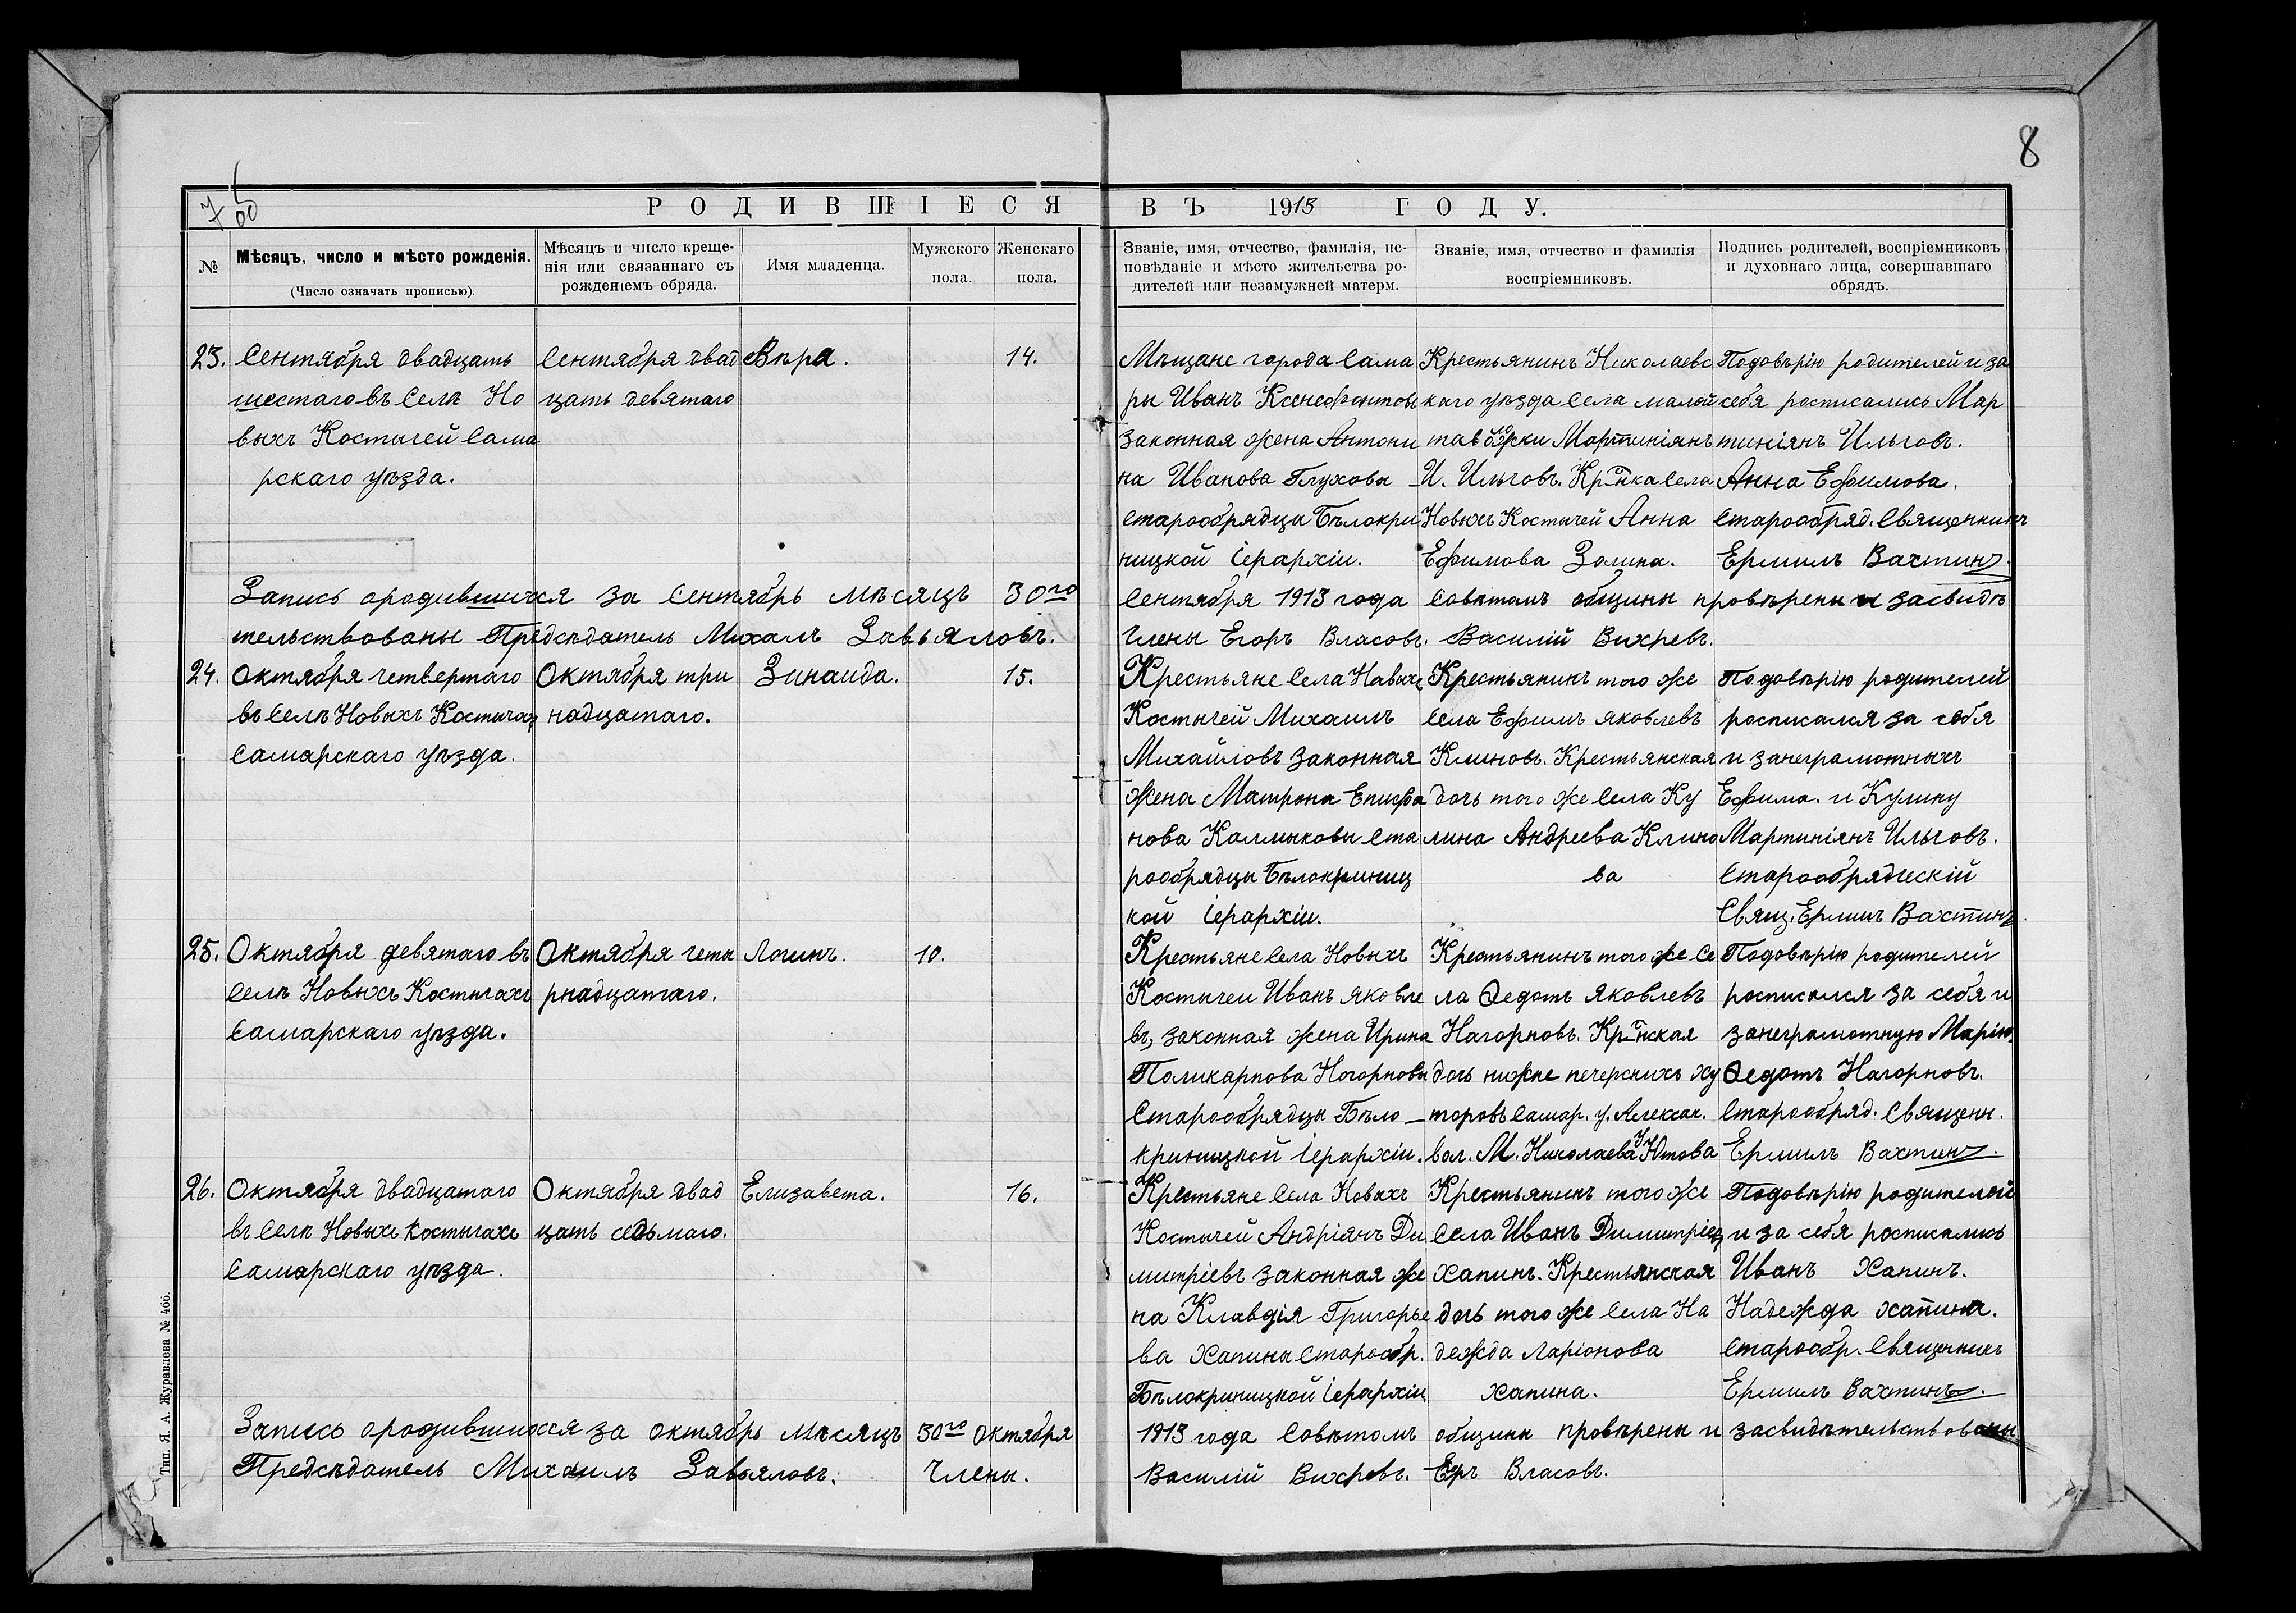 8
РОДИВШІЕСЯ ВЪ 1913 ГОДУ.
№
Мѣсяцъ, число и мѣсто рожденія.
(Число означать прописью).
Мѣсяцъ и число креще-
нія или связаннаго съ
рожденіемъ обряда.
Имя младенца.
Мужского
пола.
Женскаго
пола.
Званіе, имя, отчество, фамилія, ис-
повѣданіе и мѣсто жительства ро-
дителей или незамужней матерм.
Званіе, имя, отчество и фамилія
воспріемниковъ.
Подпись родителей, воспріемниковъ
и духовнаго лица, совершавшаго
обрядъ.
23.
Сентября двадцать
шестаго въ Селѣ Но
выхъ Костычей Сама
рскаго уѣзда.
Сентября двад
цать девятаго
Вѣра.
14.
Мѣщане города Сама
ры Иванъ Ксенофонтовъ
законная жена Антони
на Иванова Глуховы
старообрядцы Бѣлокри
ницкой іерархіи.
Крестьянинъ Николаевс
каго уѣзда Села малой
Мартиніянъ
И. Ильговъ. Кр-нка Села
Новыхъ Костычей Анна
Ефимова Золина.
Подовѣрію родителей и за
себя росписались Мар
тиніянъ Ильговъ.
Анна Ефимова.
Старообряд. Священникъ
Ермилъ Вахтинъ.
Запись ородившихся за Сентябрь мѣсяцъ 30го Сентября 1913 года Совѣтомъ общины провѣрены и засвидѣ
тельствованы Предсѣдатель Михаилъ Завьяловъ. Члены Егоръ Власовъ. Василій Вихревъ.
24.
Октября четвертаго
въ Селѣ Новыхъ Костычахъ
Самарскаго уѣзда.
Октября три
надцатаго.
Зинаида.
15.
Крестьяне Села Новыхъ
Костычей Михаилъ
Михайловъ законная
жена Матрона Епифа
нова Калмыковы Ста
рообрядцы Бѣлокриниц
кой іерархіи.
Крестьянинъ того же
Села Ефимъ Яковлевъ
Климовъ. Крестьянская
дочь того же Села Ку
лина Андреева Климо
ва
Подовѣрію родителей
росписался за себя
и занеграмотныхъ
Ефима. и Кулину
Мартиніянъ Ильговъ.
Старообрядческій
Свящ. Ермилъ Вахтинъ.
25.
Октября девятаго въ
Селѣ Новыхъ Костычахъ
Самарскаго уѣзда.
Октября четы
рнадцатаго.
Логинъ.
10.
Крестьяне Села Новыхъ
Костычеи Иванъ Яковле
въ, законная жена Ирина
Поликарпова Ногорновы
Старообрядцы Бѣло-
криницкой іерархіи.
Крестьянинъ того же Се
ла Ѳедотъ Яковлевъ
Нагорновъ. Кр-нская
дочь нижне печерскихъ ху
торовъ Самар. у. Алексан.
вол. М. Николаева
Подовѣрію родителей
росписался за себя и
занеграмотную Марію.
Ѳедотъ Нагорновъ.
Старообряд. Священн.
Ермилъ Вахтинъ.
26.
Октября двадцатаго
въ Селѣ Новыхъ Костычахъ
Самарскаго уѣзда.
Октября двад
цать седьмаго.
Елизавета.
16.
Крестьяне Села Новыхъ
Костычей Андріянъ Ди
митріевъ законная же
на Клавдія Григорье
ва Хапины Старообр.
Бѣлокриницкой іерархіи
Крестьянинъ того же
Села Иванъ Димитріевъ
Хапинъ. Крестьянская
дочь того же Села На
дежда Ларіонова
Хапина.
Подовѣрію родителей
и за себя росписались
Иванъ Хапинъ.
Надежда Хапина.
Старообр. Священникъ
Ермилъ Вахтинъ.
Запись ородившихся за Октябрь мѣсяцъ 30го Октября 1913 года Совѣтомъ общины провѣрены и засвидѣтельствованы
Предсѣдатель Михаилъ Завьяловъ. Члены. Василій Вихревъ. Егръ Власовъ.
Тип. Я. А. Журавлева № 466.